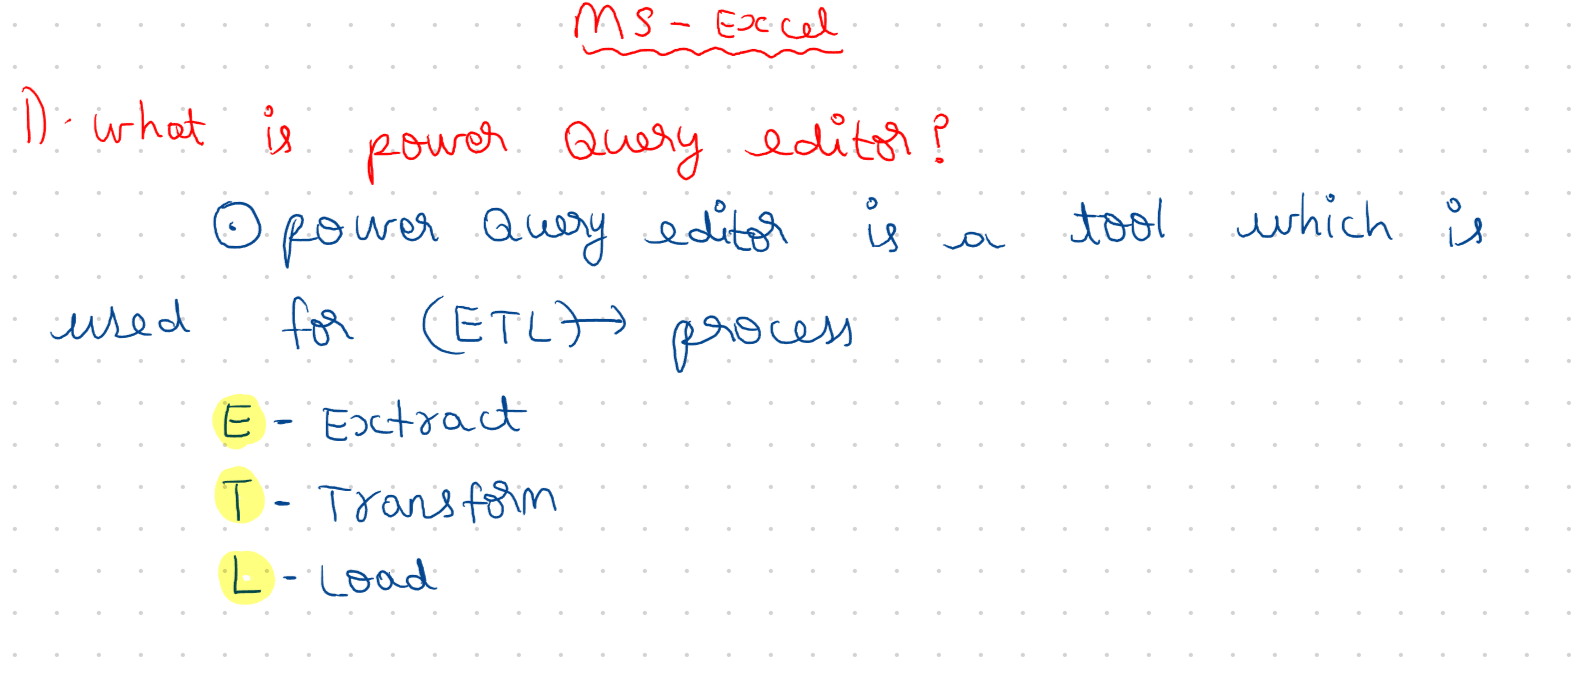 MS - Excel
1). what is power Query editor?
⊙ power Query editor is a tool which is
used for (ETL)→ process
E - Extract
T - Transform
L - Load